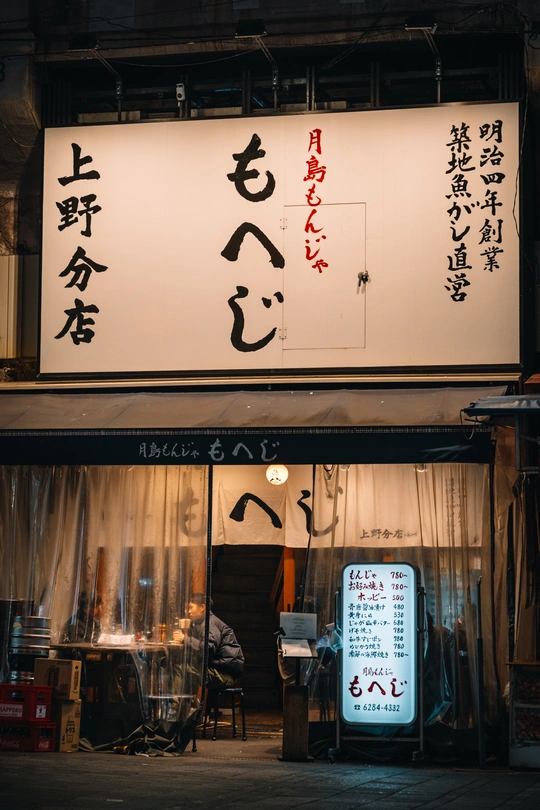 明治四年創業
築地魚がし直営
月島もんじゃ
もへじ
上野分店
月島もんじゃ もへじ
もへじ
上野分店
もんじゃ 780~
お好み焼き 780~
ホッピー 500
480
530
じゃが山キバター 680
げそ焼き 780
780~
780~
780~
月島もんじゃ
もへじ
☎6284-4332
SAPPORO